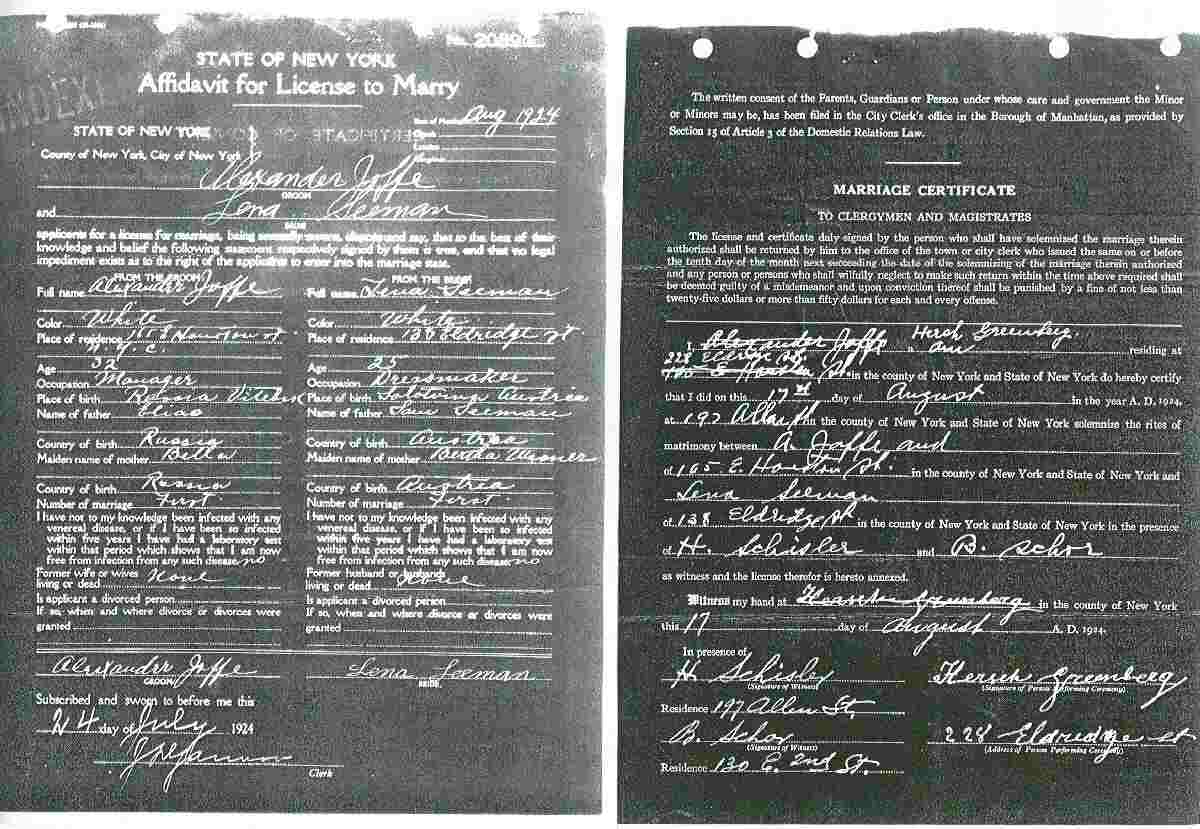 No. 2089
STATE OF NEW YORK
Affidavit for License to Marry
Aug 1924
STATE OF NEW YORK
County of New York, City of New York
Alexander Joffe
GROOM
and Lena Seeman
BRIDE
applicants for a license for marriage, being severally sworn, depose and say, that to the best of their
knowledge and belief the following statement respectively signed by them is true, and that no legal
impediment exists as to the right of the applicants to enter into the marriage state.
FROM THE GROOM
Full name Alexander Joffe
Color White
Place of residence 165 E Houston st
N.Y.C.
Age 32
Occupation Manager
Place of birth Russia Vitebsk
Name of father Elias
Country of birth Russia
Maiden name of mother Bella
Country of birth Russia
Number of marriage First
I have not to my knowledge been infected with any
venereal disease, or if I have been so infected
within five years I have had a laboratory test
within that period which shows that I am now
free from infection from any such disease. no
Former wife or wives None
living or dead
Is applicant a divorced person
If so, when and where divorce or divorces were
granted
FROM THE BRIDE
Full name Lena Seeman
Color White
Place of residence 138 Eldridge st
Age 25
Occupation Dressmaker
Place of birth Austria
Name of father Sam Seeman
Country of birth Austria
Maiden name of mother Bertha
Country of birth Austria
Number of marriage First
I have not to my knowledge been infected with any
venereal disease, or if I have been so infected
within five years I have had a laboratory test
within that period which shows that I am now
free from infection from any such disease. no
Former husband or husbands
living or dead None
Is applicant a divorced person
If so, when and where divorce or divorces were
granted
Alexander Joffe
GROOM
Lena Seeman
BRIDE
Subscribed and sworn to before me this
24 day of July 1924
Clerk
The written consent of the Parents, Guardians or Person under whose care and government the Minor
or Minors may be, has been filed in the City Clerk's office in the Borough of Manhattan, as provided by
Section 15 of Article 3 of the Domestic Relations Law.
MARRIAGE CERTIFICATE
TO CLERGYMEN AND MAGISTRATES
The license and certificate duly signed by the person who shall have solemnized the marriage therein
authorized shall be returned by him to the office of the town or city clerk who issued the same on or before
the tenth day of the month next succeeding the date of the solemnizing of the marriage therein authorized
and any person or persons who shall wilfully neglect to make such return within the time above required shall
be deemed guilty of a misdemeanor and upon conviction thereof shall be punished by a fine of not less than
twenty-five dollars or more than fifty dollars for each and every offense.
I, Alexander Joffe Hersh Greenberg. residing at
228 Eldridge St.
165 E Houston St. in the county of New York and State of New York do hereby certify
that I did on this 17th day of August in the year A. D. 1924,
at 197 Allen St in the county of New York and State of New York solemnize the rites of
matrimony between A. Joffe and
of 165 E. Houston St. in the county of New York and State of New York and
Lena Seeman
of 138 Eldridge St in the county of New York and State of New York in the presence
of H. Schisler and B. Schor
as witness and the license therefor is hereto annexed.
Witness my hand at Greenberg in the county of New York
this 17 day of August A. D. 1924.
In presence of
H. Schisler
(Signature of Witness)
Hersch Greenberg
(Signature of Person Performing Ceremony)
Residence 197 Allen St,
B. Schor
(Signature of Witness)
228 Eldredge st
(Address of Person Performing Ceremony)
Residence 130 E. 2nd St.